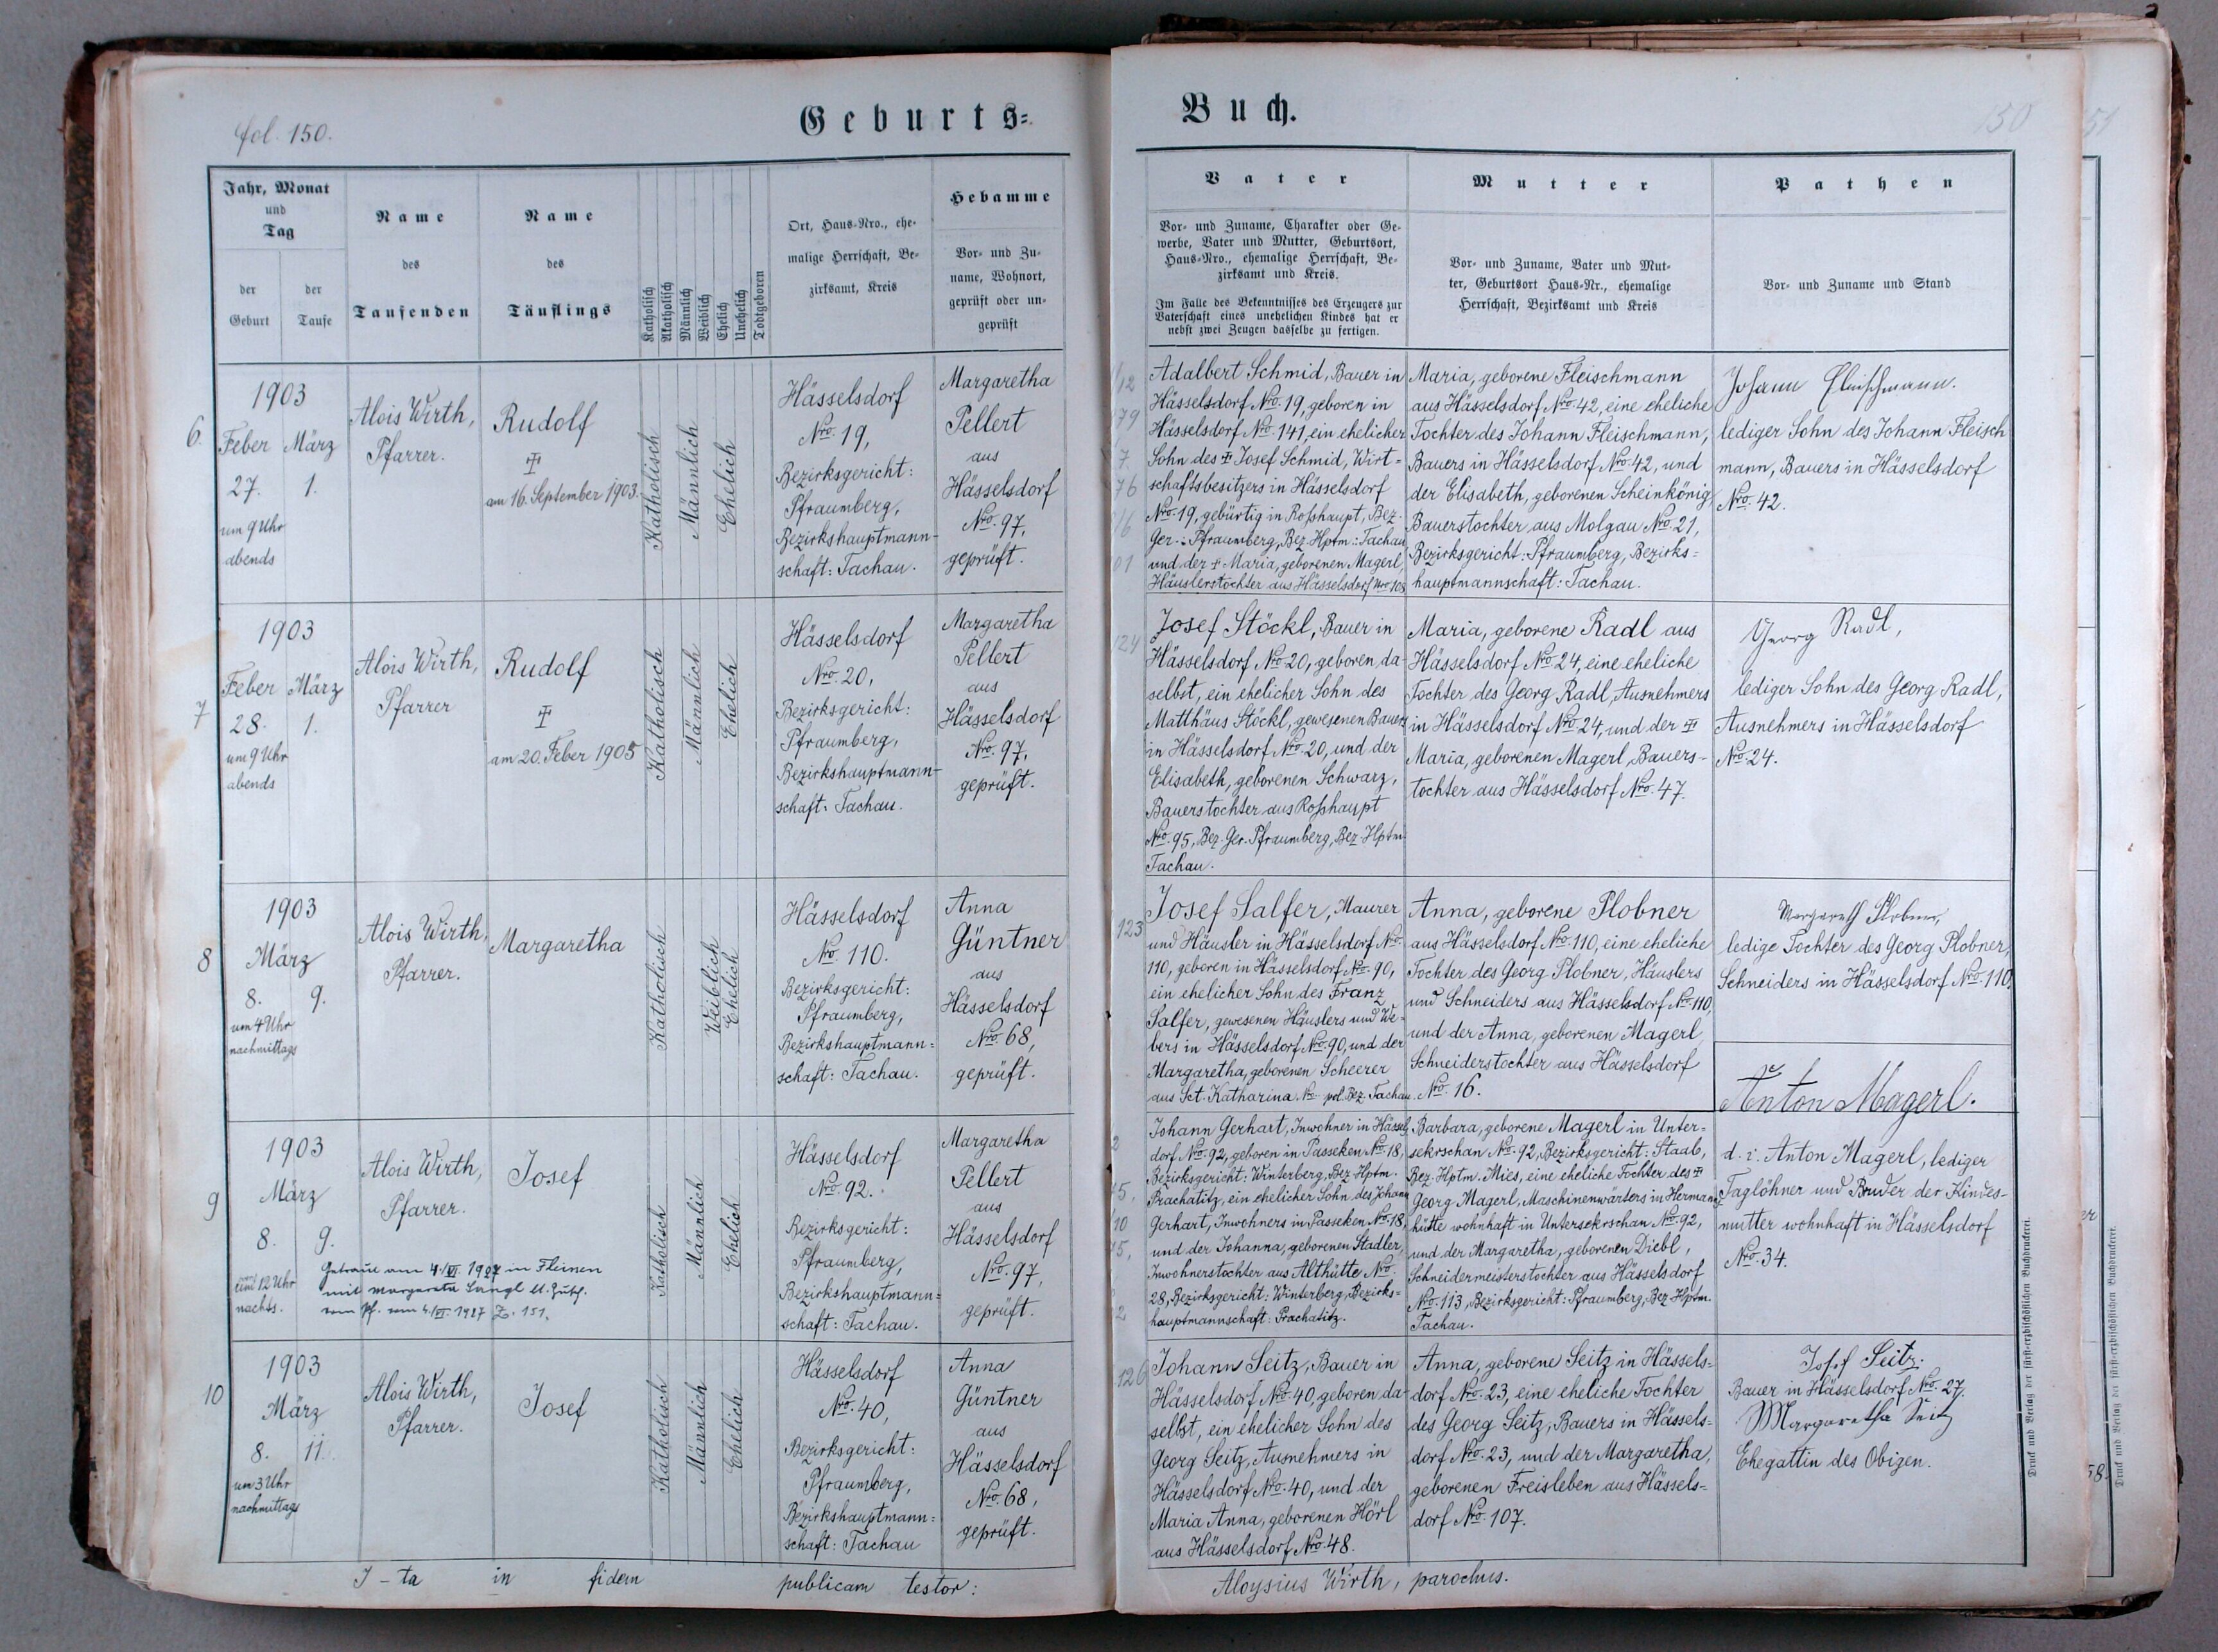 fol. 150.
Geburts=
Jahr, Monat
und
Tag
der
Geburt
der
Taufe
Name
des
Taufenden
Name
des
Täuflings
Katholisch
Akatholisch
Männlich
Weiblich
Ehelich
Unehelich
Todtgeboren
Ort, Haus-Nro., ehe-
malige Herrschaft, Be-
zirksamt, Kreis
Hebamme
Vor- und Zu-
name, Wohnort,
geprüft oder un-
geprüft
6.
1903
Feber März
27. 1.
um 9 Uhr
abends
Alois Wirth,
Pfarrer.
Rudolf
am 16. September 1903.
Katholisch
Männlich
Ehelich
Hässelsdorf
Nro. 19,
Bezirksgericht:
Pfraumberg,
Bezirkshauptmann-
schaft: Tachau.
Margaretha
Pellert
aus
Hässelsdorf
Nro. 97,
geprüft.
7
1903
Feber März
28. 1.
um 9 Uhr
abends
Alois Wirth,
Pfarrer
Rudolf
am 20. Feber 1905
Katholisch
Männlich
Ehelich
Hässelsdorf
Nro. 20,
Bezirksgericht:
Pfraumberg,
Bezirkshauptmann-
schaft: Tachau.
Margaretha
Pellert
aus
Hässelsdorf
Nro. 97,
geprüft.
8
1903
März
8. 9.
um 4 Uhr
nachmittags
Alois Wirth,
Pfarrer.
Margaretha
Katholisch
Weiblich
Ehelich
Hässelsdorf
No. 110.
Bezirksgericht:
Pfraumberg,
Bezirkshauptmann=
schaft: Tachau.
Anna
Güntner
aus
Hässelsdorf
Nro. 68,
geprüft.
9
1903
März
8. 9.
um 12 Uhr
nachts.
Alois Wirth,
Pfarrer.
Josef
Getraut am 4./VI. 1927 in Fleinen
mit Margareta Langl
Katholisch
Männlich
Ehelich
Hässelsdorf
Nro. 92.
Bezirksgericht:
Pfraumberg,
Bezirkshauptmann=
schaft: Tachau.
Margaretha
Pellert
aus
Hässelsdorf
Nro. 97,
geprüft.
10
1903
März
8. 11.
um 3 Uhr
nachmittags
Alois Wirth,
Pfarrer.
Josef
Katholisch
Männlich
Ehelich
Hässelsdorf
Nro. 40,
Bezirksgericht:
Pfraumberg,
Bezirkshauptmann=
schaft: Tachau
Anna
Güntner
aus
Hässelsdorf
Nro. 68,
geprüft.
I-ta in fidem publicam testor:
Buch.
150
Vater
Vor- und Zuname, Charakter oder Ge-
werbe, Vater und Mutter, Geburtsort,
Haus-Nro., ehemalige Herrschaft, Be-
zirksamt und Kreis.
Im Falle des Bekenntnisses des Erzeugers zur
Vaterschaft eines unehelichen Kindes hat er
nebst zwei Zeugen dasselbe zu fertigen.
Mutter
Vor- und Zuname, Vater und Mut-
ter, Geburtsort Haus-Nr., ehemalige
Herrschaft, Bezirksamt und Kreis
Pathen
Vor- und Zuname und Stand
Adalbert Schmid, Bauer in
Hässelsdorf Nro. 19, geboren in
Hässelsdorf Nro. 141, ein ehelicher
Sohn des Josef Schmid, Wirt=
schaftsbesitzers in Hässelsdorf
Nro. 19, gebürtig in Roßhaupt, Bez.
Ger.: Pfraumberg, Bez. Hptm.: Tachau
und der + Maria, geborenen Magerl,
Häuslerstochter aus Hässelsdorf Nro 108
Maria, geborene Fleischmann
aus Hässelsdorf Nro. 42, eine eheliche
Tochter des Johann Fleischmann,
Bauers in Hässelsdorf Nro. 42, und
der Elisabeth, geborenen Scheinkönig,
Bauerstochter aus Molgau Nro. 21,
Bezirksgericht: Pfraumberg, Bezirks=
hauptmannschaft: Tachau.
Johann Fleischmann.
lediger Sohn des Johann Fleisch
mann, Bauers in Hässelsdorf
Nro. 42.
124
Josef Stöckl, Bauer in
Hässelsdorf Nro. 20, geboren da-
selbst, ein ehelicher Sohn des
Matthäus Stöckl, gewesenen Bauers
in Hässelsdorf Nro. 20, und der
Elisabeth, geborenen Schwarz,
Bauerstochter aus Roßhaupt
Nro. 95, Bez. Ger. Pfraumberg, Bez. Hptm.
Tachau.
Maria, geborene Radl aus
Hässelsdorf Nro 24, eine eheliche
Tochter des Georg Radl, Ausnehmers
in Hässelsdorf Nro. 24, und der
Maria, geborenen Magerl, Bauers-
tochter aus Hässelsdorf Nro. 47.
Georg Radl,
lediger Sohn des Georg Radl,
Ausnehmers in Hässelsdorf
Nro. 24.
123
Josef Salfer, Maurer
und Häusler in Hässelsdorf No.
110, geboren in Hässelsdorf No. 90,
ein ehelicher Sohn des Franz
Salfer, gewesenen Häuslers und We=
bers in Hässelsdorf No. 90, und der
Margaretha, geborenen Scheerer
aus Sct. Katharina No. pol. Bez. Tachau.
Anna, geborene Plobner
aus Hässelsdorf No. 110, eine eheliche
Tochter des Georg Plobner, Häuslers
und Schneiders aus Hässelsdorf No. 110,
und der Anna, geborenen Magerl
Schneiderstochter aus Hässelsdorf
Nro. 16.
Margareth Plobner,
ledige Tochter des Georg Plobner,
Schneiders in Hässelsdorf No. 110.
Johann Gerhart, Inwohner in Hässels-
dorf No. 92, geboren in Passeken No. 18,
Bezirksgericht: Winterberg, Bez. Hptm.
Prachatitz, ein ehelicher Sohn des Johann
Gerhart, Inwohners in Passeken No. 18,
und der Johanna, geborenen Stadler,
Inwohnerstochter aus Althütte No.
28, Bezirksgericht: Winterberg, Bezirks=
hauptmannschaft: Prachatitz.
Barbara, geborene Magerl in Unter=
sekerschan No. 92, Bezirksgericht: Staab,
Bez. Hptm. Mies, eine eheliche Tochter des
Georg Magerl, Maschinenwärters in Hermanns
hütte wohnhaft in Untersekerschan No. 92,
und der Margaretha, geborenen Diebl,
Schneidermeisterstochter aus Hässelsdorf
No. 113, Bezirksgericht: Pfraumberg, Bez. Hptm.
Tachau.
Anton Magerl.
d. i. Anton Magerl, lediger
Taglöhner und Bruder der Kindes-
mutter wohnhaft in Hässelsdorf
Nro. 34.
126
Johann Seitz, Bauer in
Hässelsdorf Nro. 40, geboren da-
selbst, ein ehelicher Sohn des
Georg Seitz, Ausnehmers in
Hässelsdorf Nro. 40, und der
Maria Anna, geborenen Hörl
aus Hässelsdorf Nro. 48.
Anna, geborene Seitz in Hässels=
dorf Nro. 23, eine eheliche Tochter
des Georg Seitz, Bauers in Hässels=
dorf Nro. 23, und der Margaretha,
geborenen Freisleben aus Hässels=
dorf Nro. 107.
Josef Seitz.
Bauer in Hässelsdorf Nro. 27.
Margaretha Seitz
Ehegattin des Obigen.
Aloysius Wirth, parochus.
Druck und Verlag der fürst-erzbischöflichen Buchdruckerei.